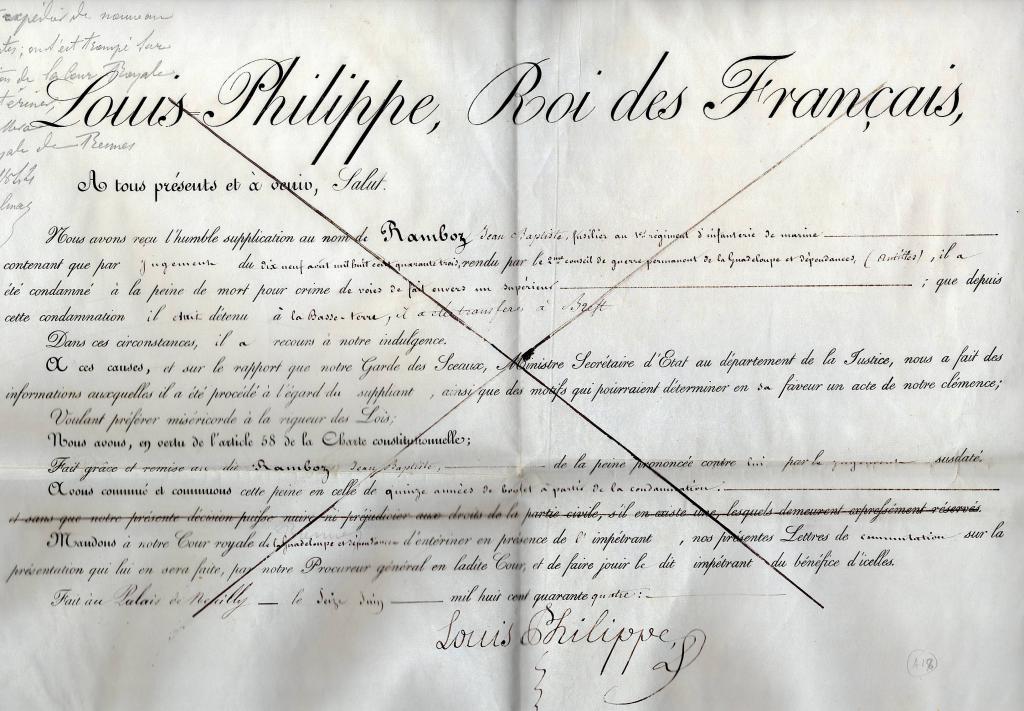 expédier de nouveau
on s'est trompé sur
de la Cour Royale
de Rennes
Louis Philippe, Roi des Français,
A tous présents et à venir, Salut.
Nous avons reçu l'humble supplication au nom de Ramboz Jean Baptiste, fusilier au 1er régiment d'infanterie de marine
contenant que par jugement du dix neuf août mil huit cent quarante trois, rendu par le 2me conseil de guerre permanent de la Guadeloupe et dépendances, (Antilles), il a
été condamné à la peine de mort pour crime de voies de fait envers un supérieur ; que depuis
cette condamnation il était détenu à la Basse-terre, il a été transféré à Brest
Dans ces circonstances, il a recours à notre indulgence.
A ces causes, et sur le rapport que notre Garde des Sceaux, Ministre Secrétaire d'Etat au département de la Justice, nous a fait des
informations auxquelles il a été procédé à l'égard du suppliant, ainsi que des motifs qui pourraient déterminer en sa faveur un acte de notre clémence;
Voulant préférer miséricorde à la rigueur des Lois;
Nous avons, en vertu de l'article 58 de la Charte constitutionnelle;
Fait grâce et remise au dit Ramboz Jean Baptiste, de la peine prononcée contre lui par le jugement susdaté.
Avons commué et commuons cette peine en celle de quinze années de boulet à partir de la condamnation.
et sans que notre présente décision puisse nuire ni préjudicier aux droits de la partie civile, s'il en existe une, lesquels demeurent expressément réservés.
Mandons à notre Cour royale de la Guadeloupe et dépendances d'entériner en présence de l'impétrant, nos présentes Lettres de commutation sur la
présentation qui lui en sera faite, par notre Procureur général en ladite Cour, et de faire jouir le dit impétrant du bénéfice d'icelles.
Fait au Palais de Neuilly le Seize Juin mil huit cent quarante quatre.
Louis Philippe
A18